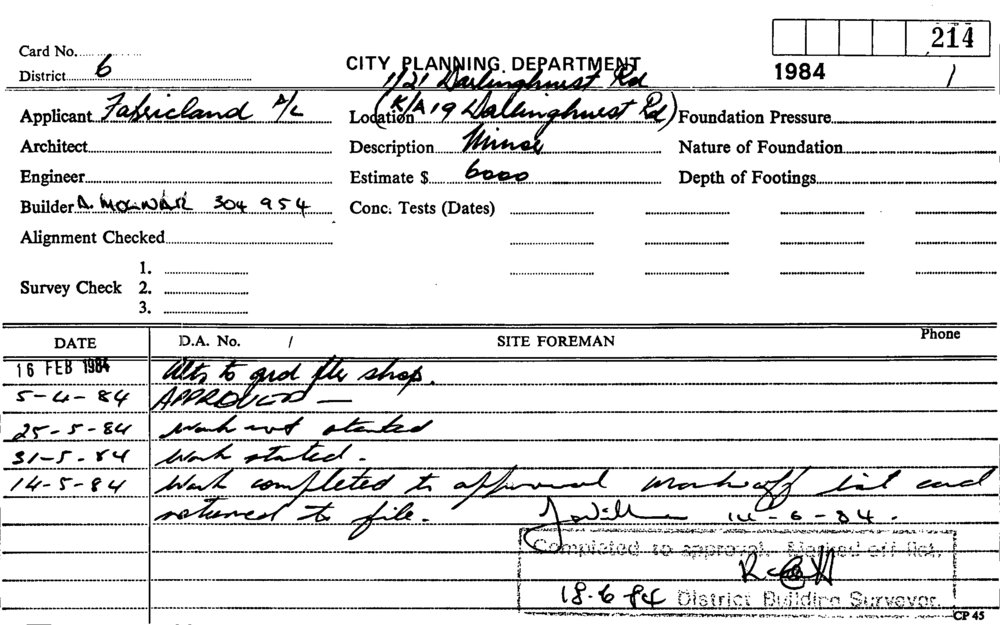 214
Card No.
1984 /
District 6
CITY PLANNING DEPARTMENT
1/21 Darlinghurst Rd
Applicant Fabricland P/L
Location (K/A 19 Darlinghurst Rd)
Foundation Pressure
Architect
Description Minor
Nature of Foundation
Engineer
Estimate $ 6000
Depth of Footings
Builder A. MOLNAR 304 954
Conc. Tests (Dates)
Alignment Checked
Survey Check
1.
2.
3.
DATE D.A. No. / SITE FOREMAN Phone
16 FEB 1984 Alts to grd flr shop.
5-4-84 APPROVED —
25-5-84 Work not started
31-5-84 Work started.
14-5-84 Work completed to approval mark off list card
returned to file. 14-6-84.
Completed to approval. Marked off list.
18-6-84 District Building Surveyor.
CP 45